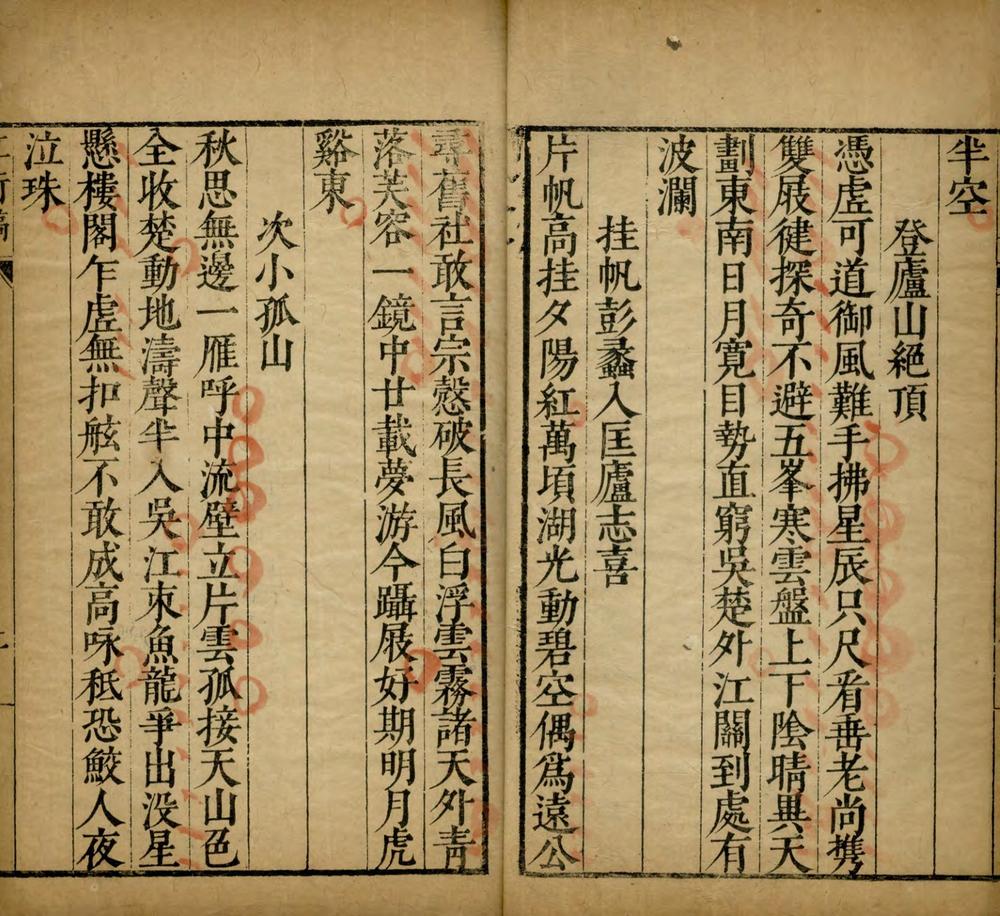 半空
登廬山絕頂
憑虛可道御風難手拂星辰只尺看垂老尚攜
雙屐徤探奇不避五峯寒雲盤上下陰晴異天
劃東南日月寬目勢直窮吳楚外江關到處有
波瀾
挂帆彭蠡入匡廬志喜
片帆高挂夕陽紅萬頃湖光動碧空偶爲遠公
尋舊社敢言宗愨破長風白浮雲霧諸天外青
落芙容一鏡中廿載夢游今躡屐好期明月虎
谿東
次小孤山
秋思無邊一雁呼中流壁立片雲孤接天山色
全收楚動地濤聲半入吳江束魚龍爭出沒星
懸樓閣乍虛無扣舷不敢成高咏秪恐鮫人夜
泣珠